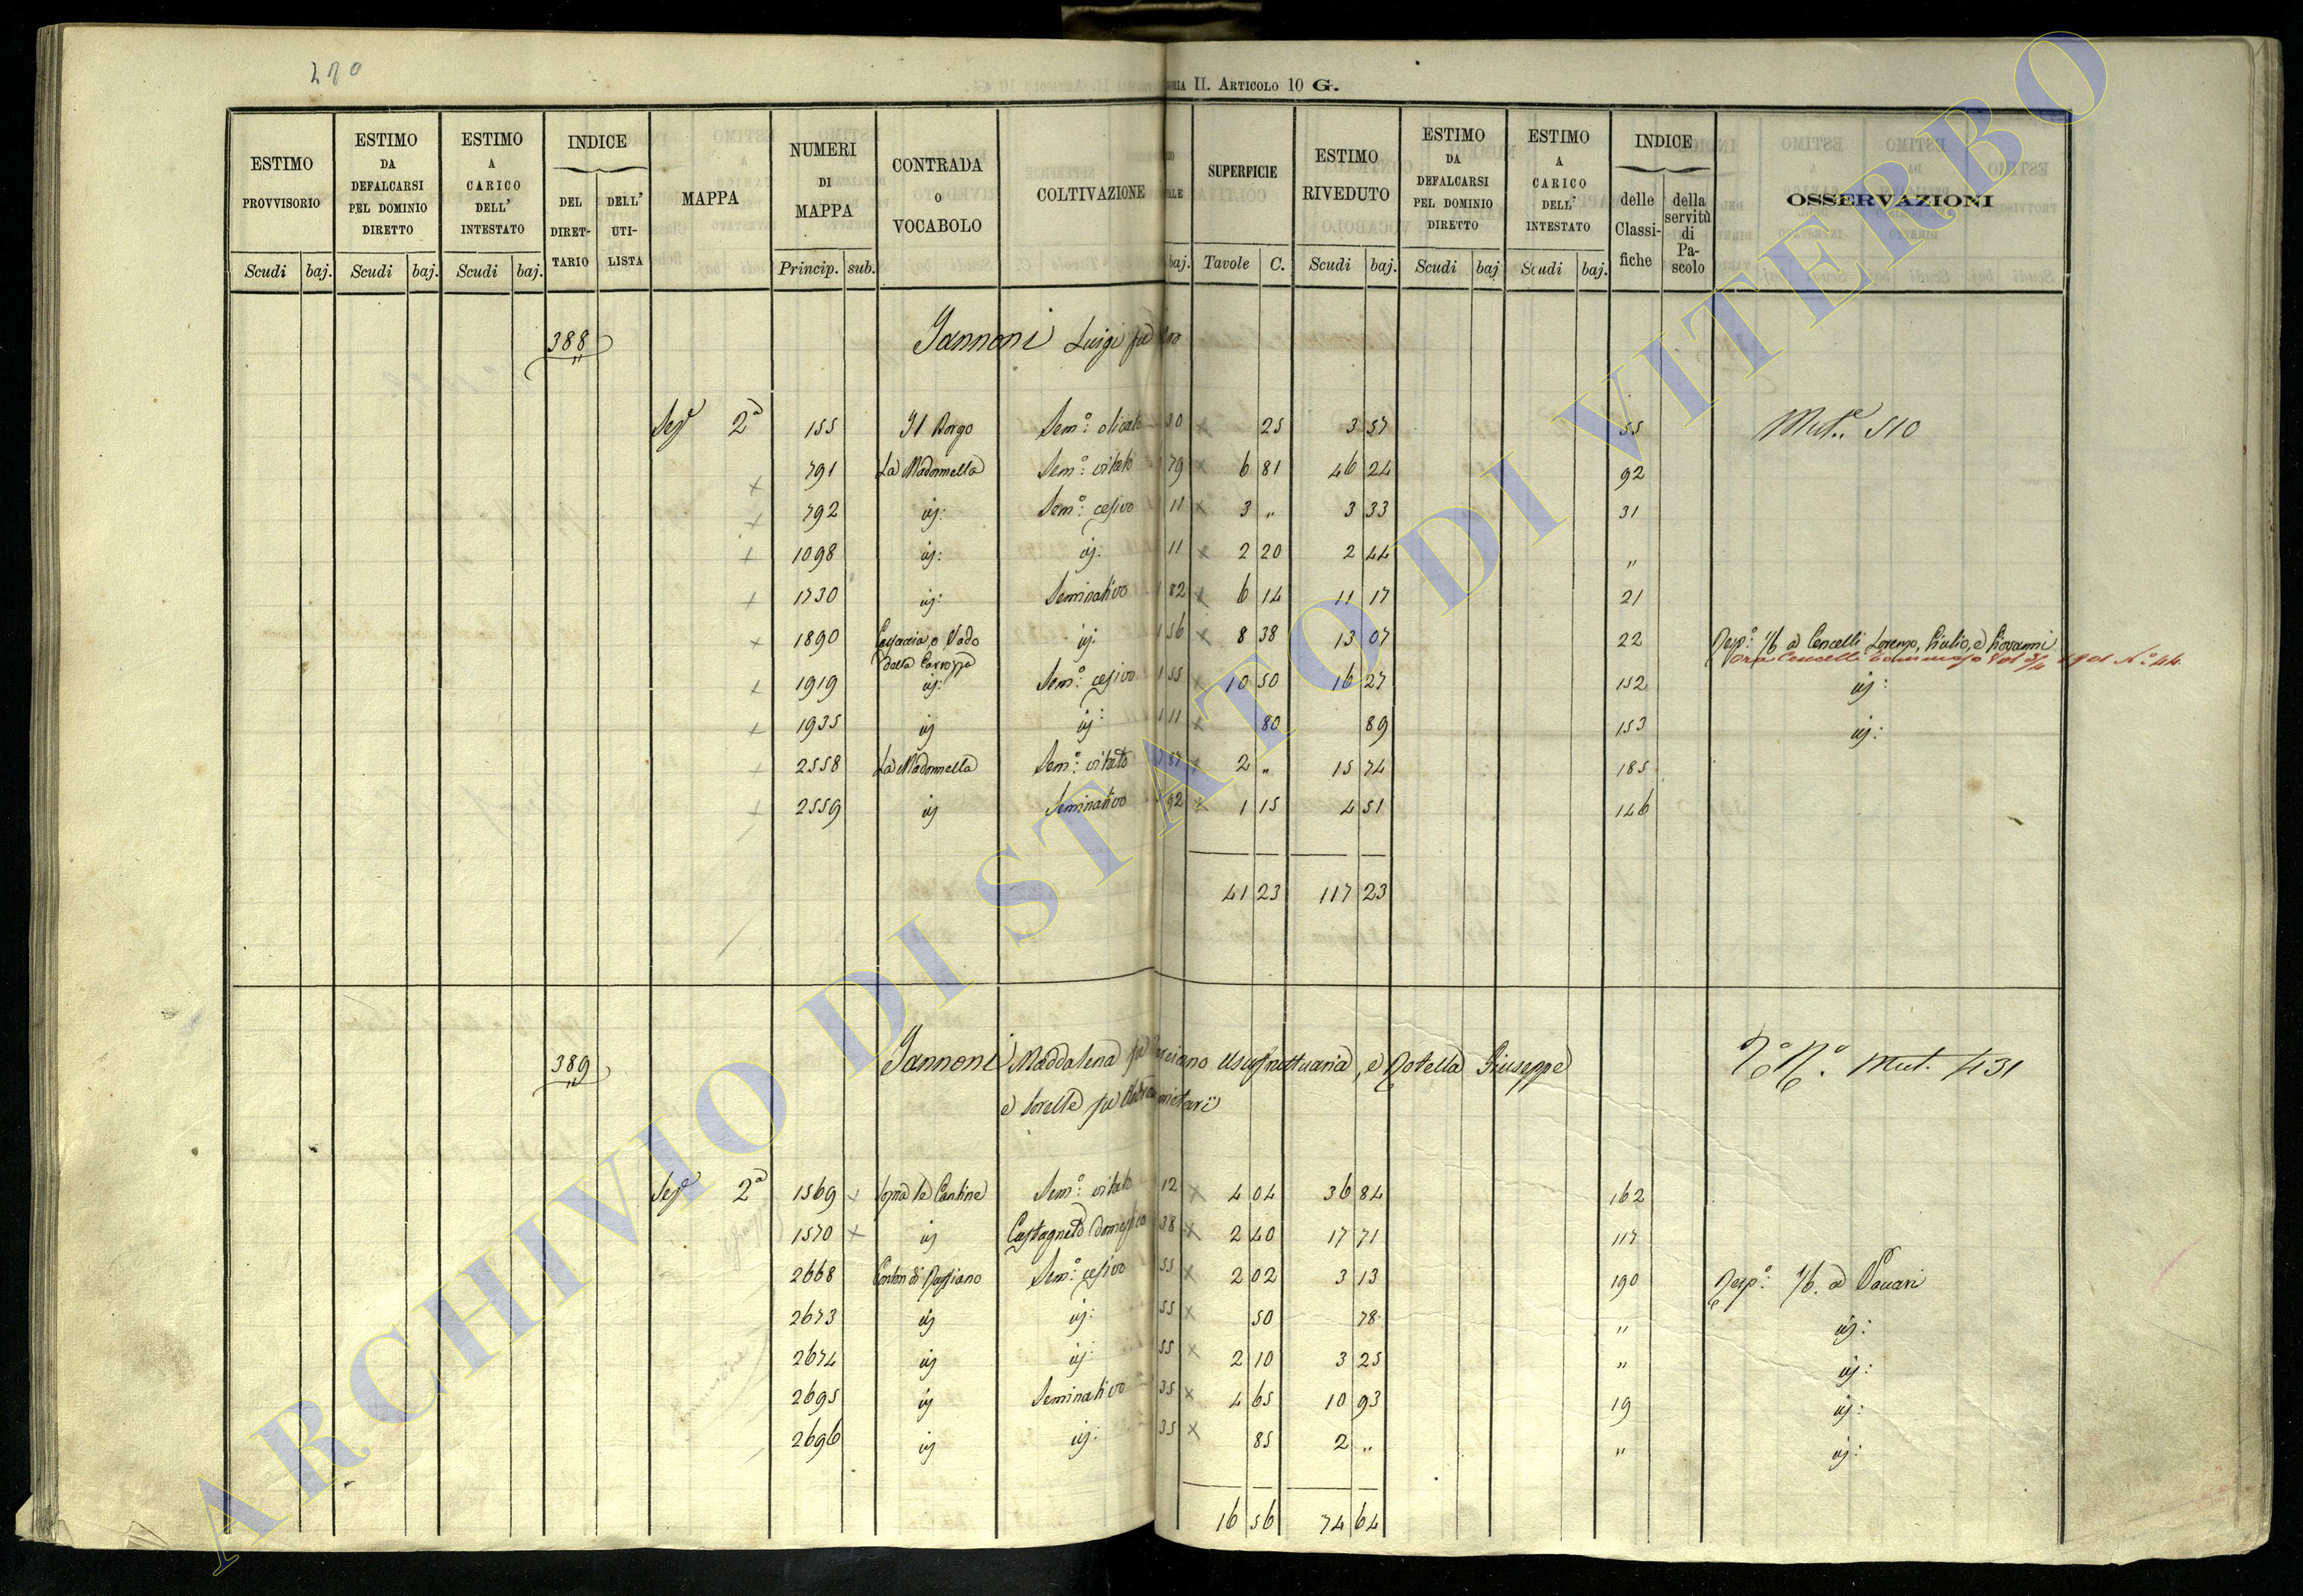 280
II. ARTICOLO 10 G.
ESTIMO PROVVISORIO Scudi baj.
ESTIMO DA DEFALCARSI PEL DOMINIO DIRETTO Scudi baj.
ESTIMO A CARICO DELL' INTESTATO Scudi baj.
INDICE DEL DIRET-TARIO DELL' UTI-LISTA
MAPPA
NUMERI DI MAPPA Princip. sub.
CONTRADA O VOCABOLO
COLTIVAZIONE
baj.
SUPERFICIE Tavole C.
ESTIMO RIVEDUTO Scudi baj.
ESTIMO DA DEFALCARSI PEL DOMINIO DIRETTO Scudi baj
ESTIMO A CARICO DELL' INTESTATO Scudi baj.
INDICE delle Classi-fiche della servitù di Pa-scolo
OSSERVAZIONI
388 Jannoni Luigi fu
Sez.e 2a 155 Il Borgo Sem.o olivato 30 x 25 3 57 55 Mut.e 510
x 791 La Madonnella Sem.o vitato 79 x 6 81 46 24 92
x 792 iij: Sem.o cesivo 11 x 3 " 3 33 31
x 1098 iij: iij: 11 x 2 20 2 44 "
x 1730 iij: Seminativo 82 x 6 14 11 17 21
x 1890 o Vado della Carrozza iij 56 x 8 38 13 07 22 Resp.o 1/6 a Cencelli Lorenzo, Giulio, e Giovanni
ora Cencelli Tommaso N.o 44
x 1919 iij: Sem.o cesivo 55 x 10 50 16 27 152 iij:
x 1935 iij iij: 11 x 80 89 153 iij:
x 2558 La Madonnella Sem.o vitato 87 x 2 " 15 74 185
x 2559 iij Seminativo 92 x 1 15 4 51 146
41 23 117 23
389 Jannoni Maddalena fu usufruttuaria, e Rotella Giuseppe
e sorelle fu
Mut. 431
Sez.e 2a 1569 x Sopra le Cantine Sem.o vitato 12 x 4 04 36 84 162
1570 x iij Castagneto domestico 38 x 2 40 17 71 117
2668 di Sem.o cesivo 55 x 2 02 3 13 190 Resp.o 1/6. a
2673 iij iij: 55 x 50 78 " iij:
2674 iij iij: 55 x 2 10 3 25 " iij:
2695 iij Seminativo 35 x 4 65 10 93 19 iij:
2696 iij iij: 35 x 85 2 " " iij:
16 56 74 64
ARCHIVIO DI STATO DI VITERBO